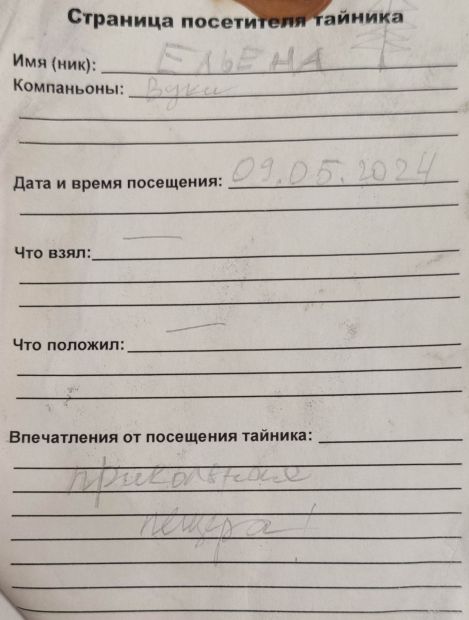 Страница посетителя тайника
Имя (ник): ЕЛЬЕНА
Компаньоны: Вуки
Дата и время посещения: 09.05.2024
Что взял: —
Что положил: —
Впечатления от посещения тайника:
прикольная
пещера!